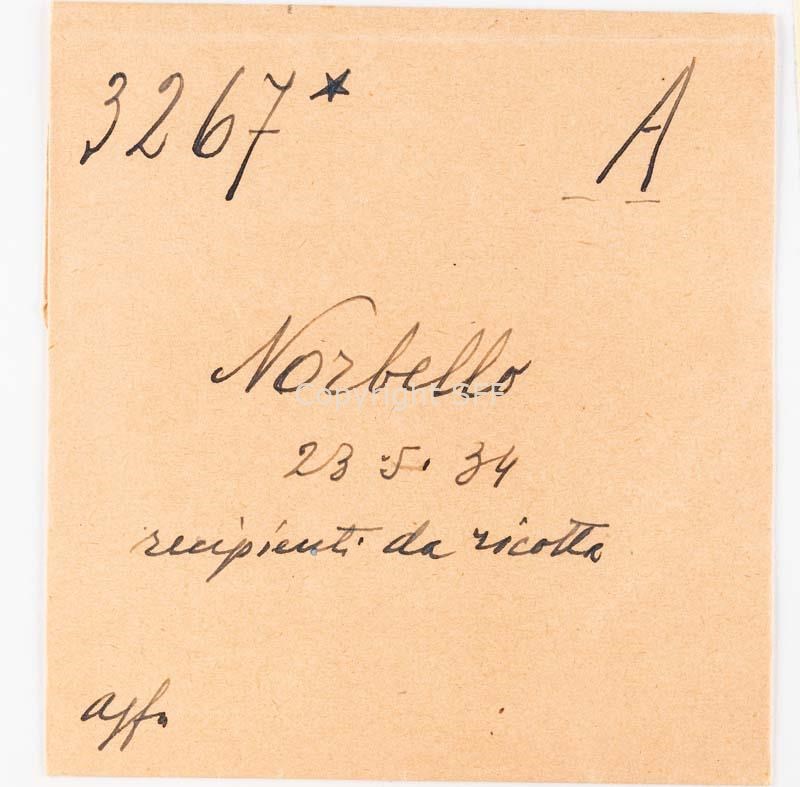 3267* A
Norbello
Copyright SFF
23.5.34
recipienti da ricotta
agfa